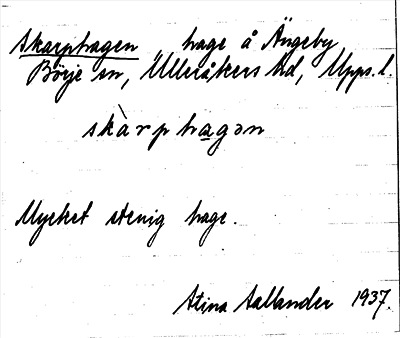 Skarphagen hage å Ängeby
Börje sn, Ulleråkers hd, Upps. l.
skàrphagən
Mycket stenig hage.
Stina Sallander 1937.